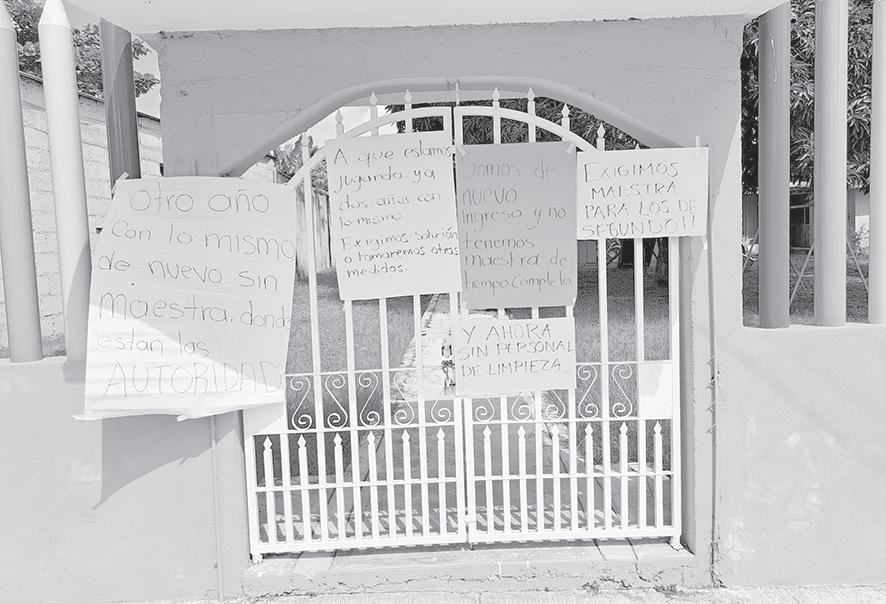 Otro año
Con lo mismo
de nuevo sin
maestra, donde
estan las
AUTORIDAD
A que estamos
Jugando ya
dos años con
lo mismo
Exigimos Solución
o tomaremos otras
medidas.
Somos de
nuevo
Ingreso y no
tenemos
maestra de
tiempo completo
EXIGIMOS
MAESTRA
PARA LOS DE
SEGUNDO!!
Y AHORA
SIN PERSONAL
DE LIMPIEZA.